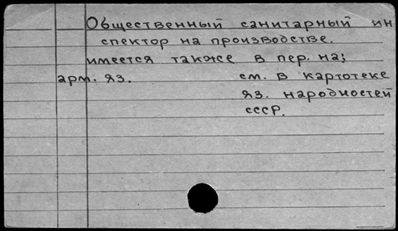 Общественный санитарный ин
спектор на производстве.
имеется также в пер. на;
арм. яз. см. в картотеке
яз. народностей
ссср.